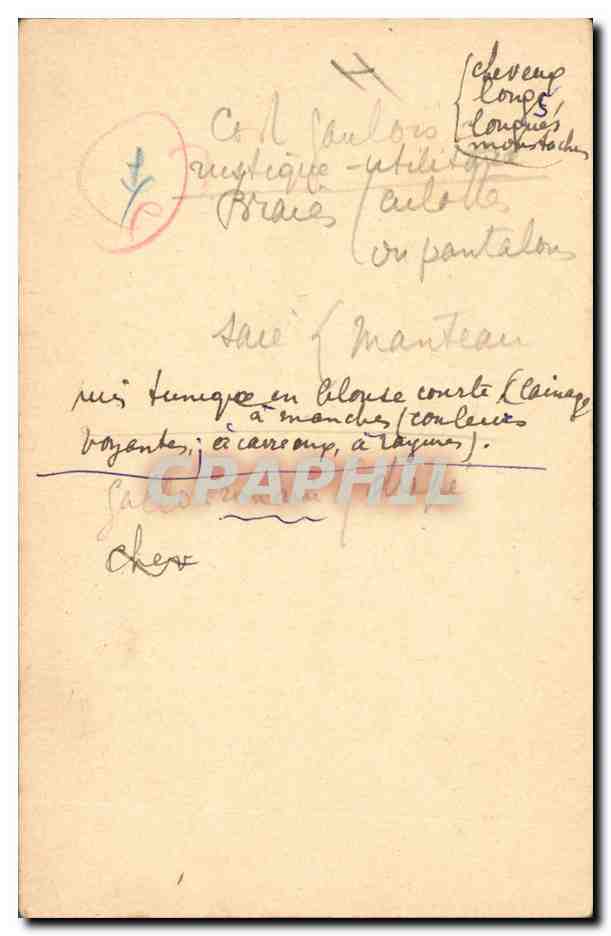 cheveux
longs,
longues
moustaches
Gaulois
rustique - utilitaire
Braies { culottes
ou pantalons
saie { Manteau
tunique en blouse courte (lainage
à manches (couleurs
voyantes, à carreaux, à rayures).
CPARHIL
Gallo romain { drapé
chev